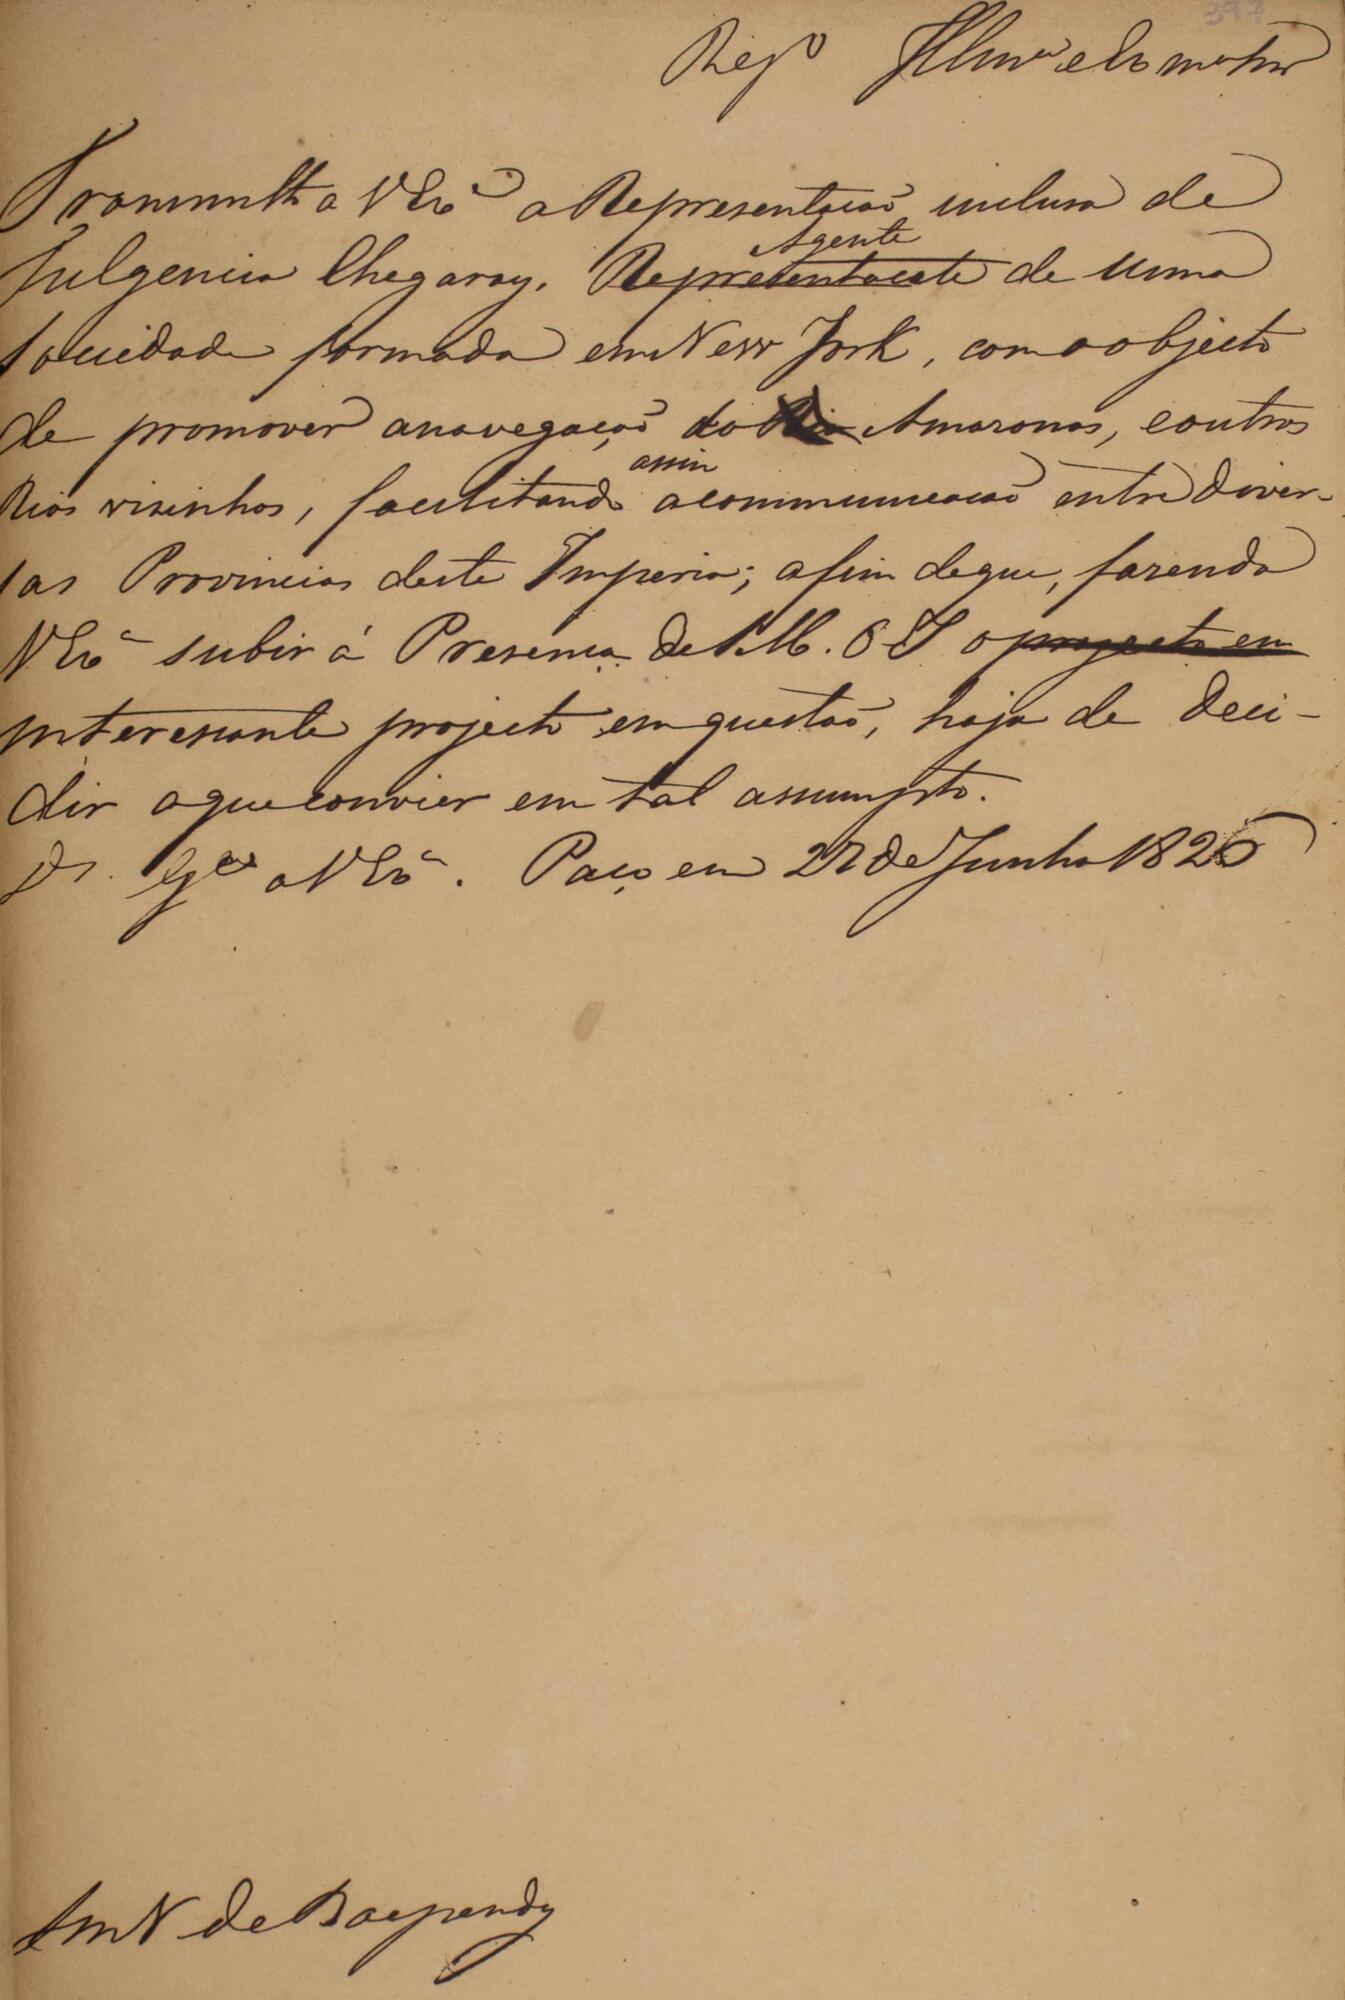 397
Reg.º Illmo e Exmo Snr
Transmitto a V Exª a Representação inclusa de
Agente
Fulgencio Chegaray, Representante de uma
sociedade formada em New York, com o objecto
de promover a navegação do Rio Amazonas, e outros
assim
Rios visinhos, facilitando a communicação entre diver-
sas Provincias deste Imperio; afim de que, fazendo
V Exª subir á Presença de S. M. O I o projecto em
interessante projecto em questão, haja de deci-
dir o que convier em tal assumpto.
Ds. Gde a V Exª. Paço em 27 de Junho 1826
de Baependy